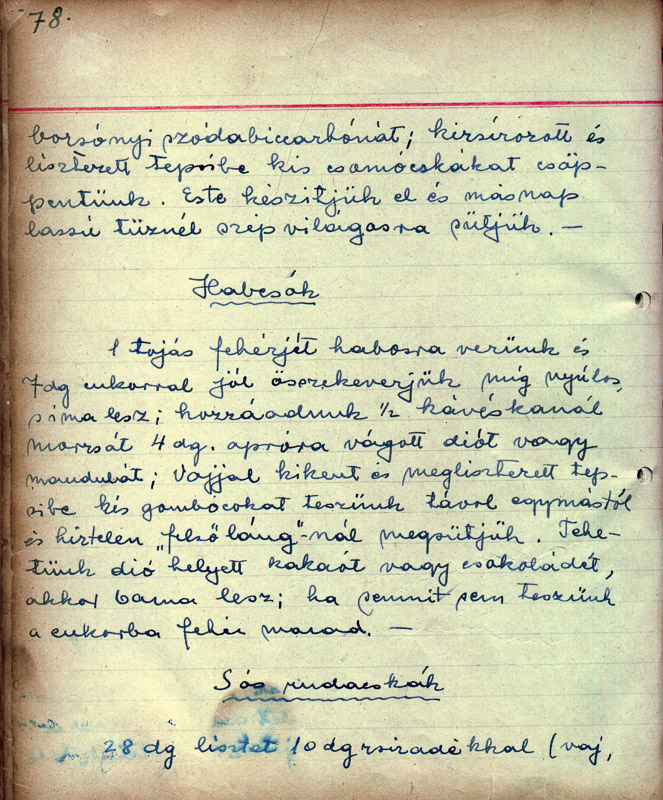 78.
borsónyi szódabiccarbónát; kizsírozott és
lisztezett tepsibe kis csomócskákat csöp-
pentünk. Este készítjük el és másnap
lassú tűznél szép világosra sütjük. —
Habcsók
1 tojás fehérjét habosra verünk és
7dg cukorral jól összekeverjük míg nyúlos,
síma lesz; hozzáadunk ½ kávéskanál
morzsát 4 dg. apróra vágott diót vagy
mandulát; Vajjal kikent és meglisztezett tep-
sibe kis gombócokat teszünk távol egymástól
és hirtelen „felső láng"-nál megsütjük. Tehe-
tünk dió helyett kakaót vagy csokoládét,
akkor barna lesz; ha semmit sem teszünk
a cukorba fehér marad. —
Sós rudacskák
28 dg lisztet 10 dg zsiradékkal (vaj,